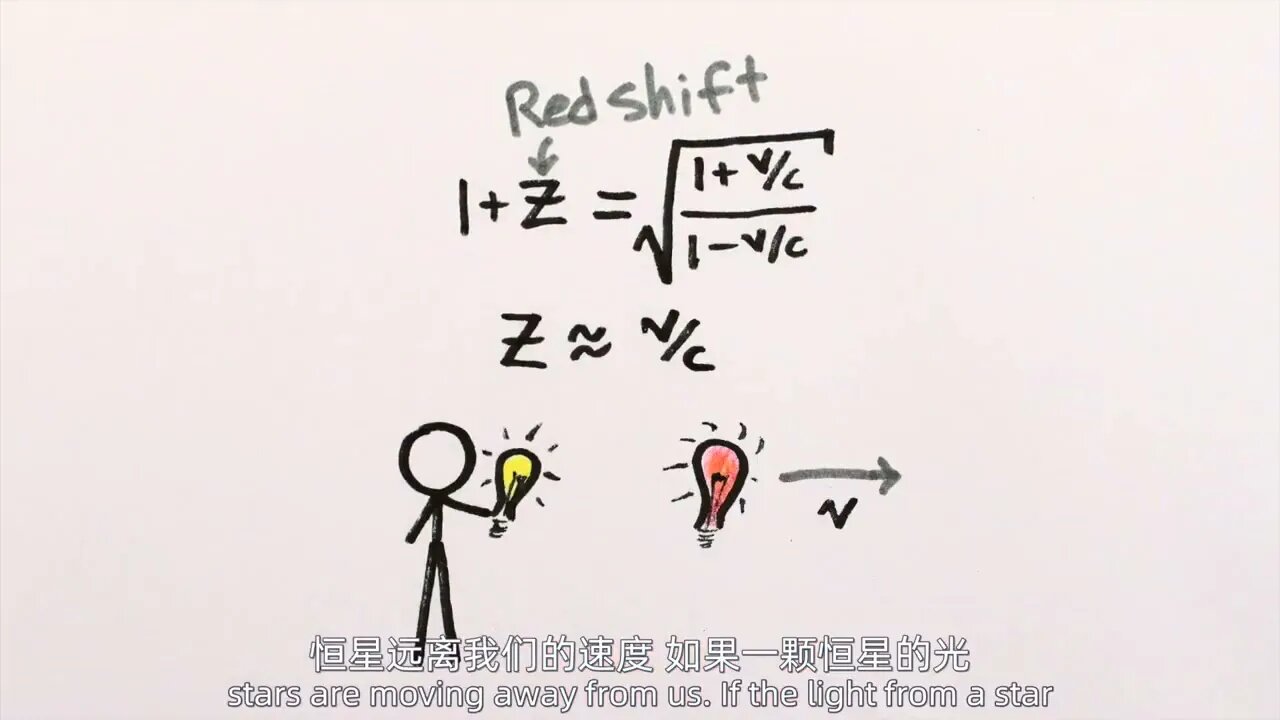 Redshift
1+Z = √((1+v/c)/(1-v/c))
Z ≈ v/c
v
恒星远离我们的速度 如果一颗恒星的光
stars are moving away from us. If the light from a star